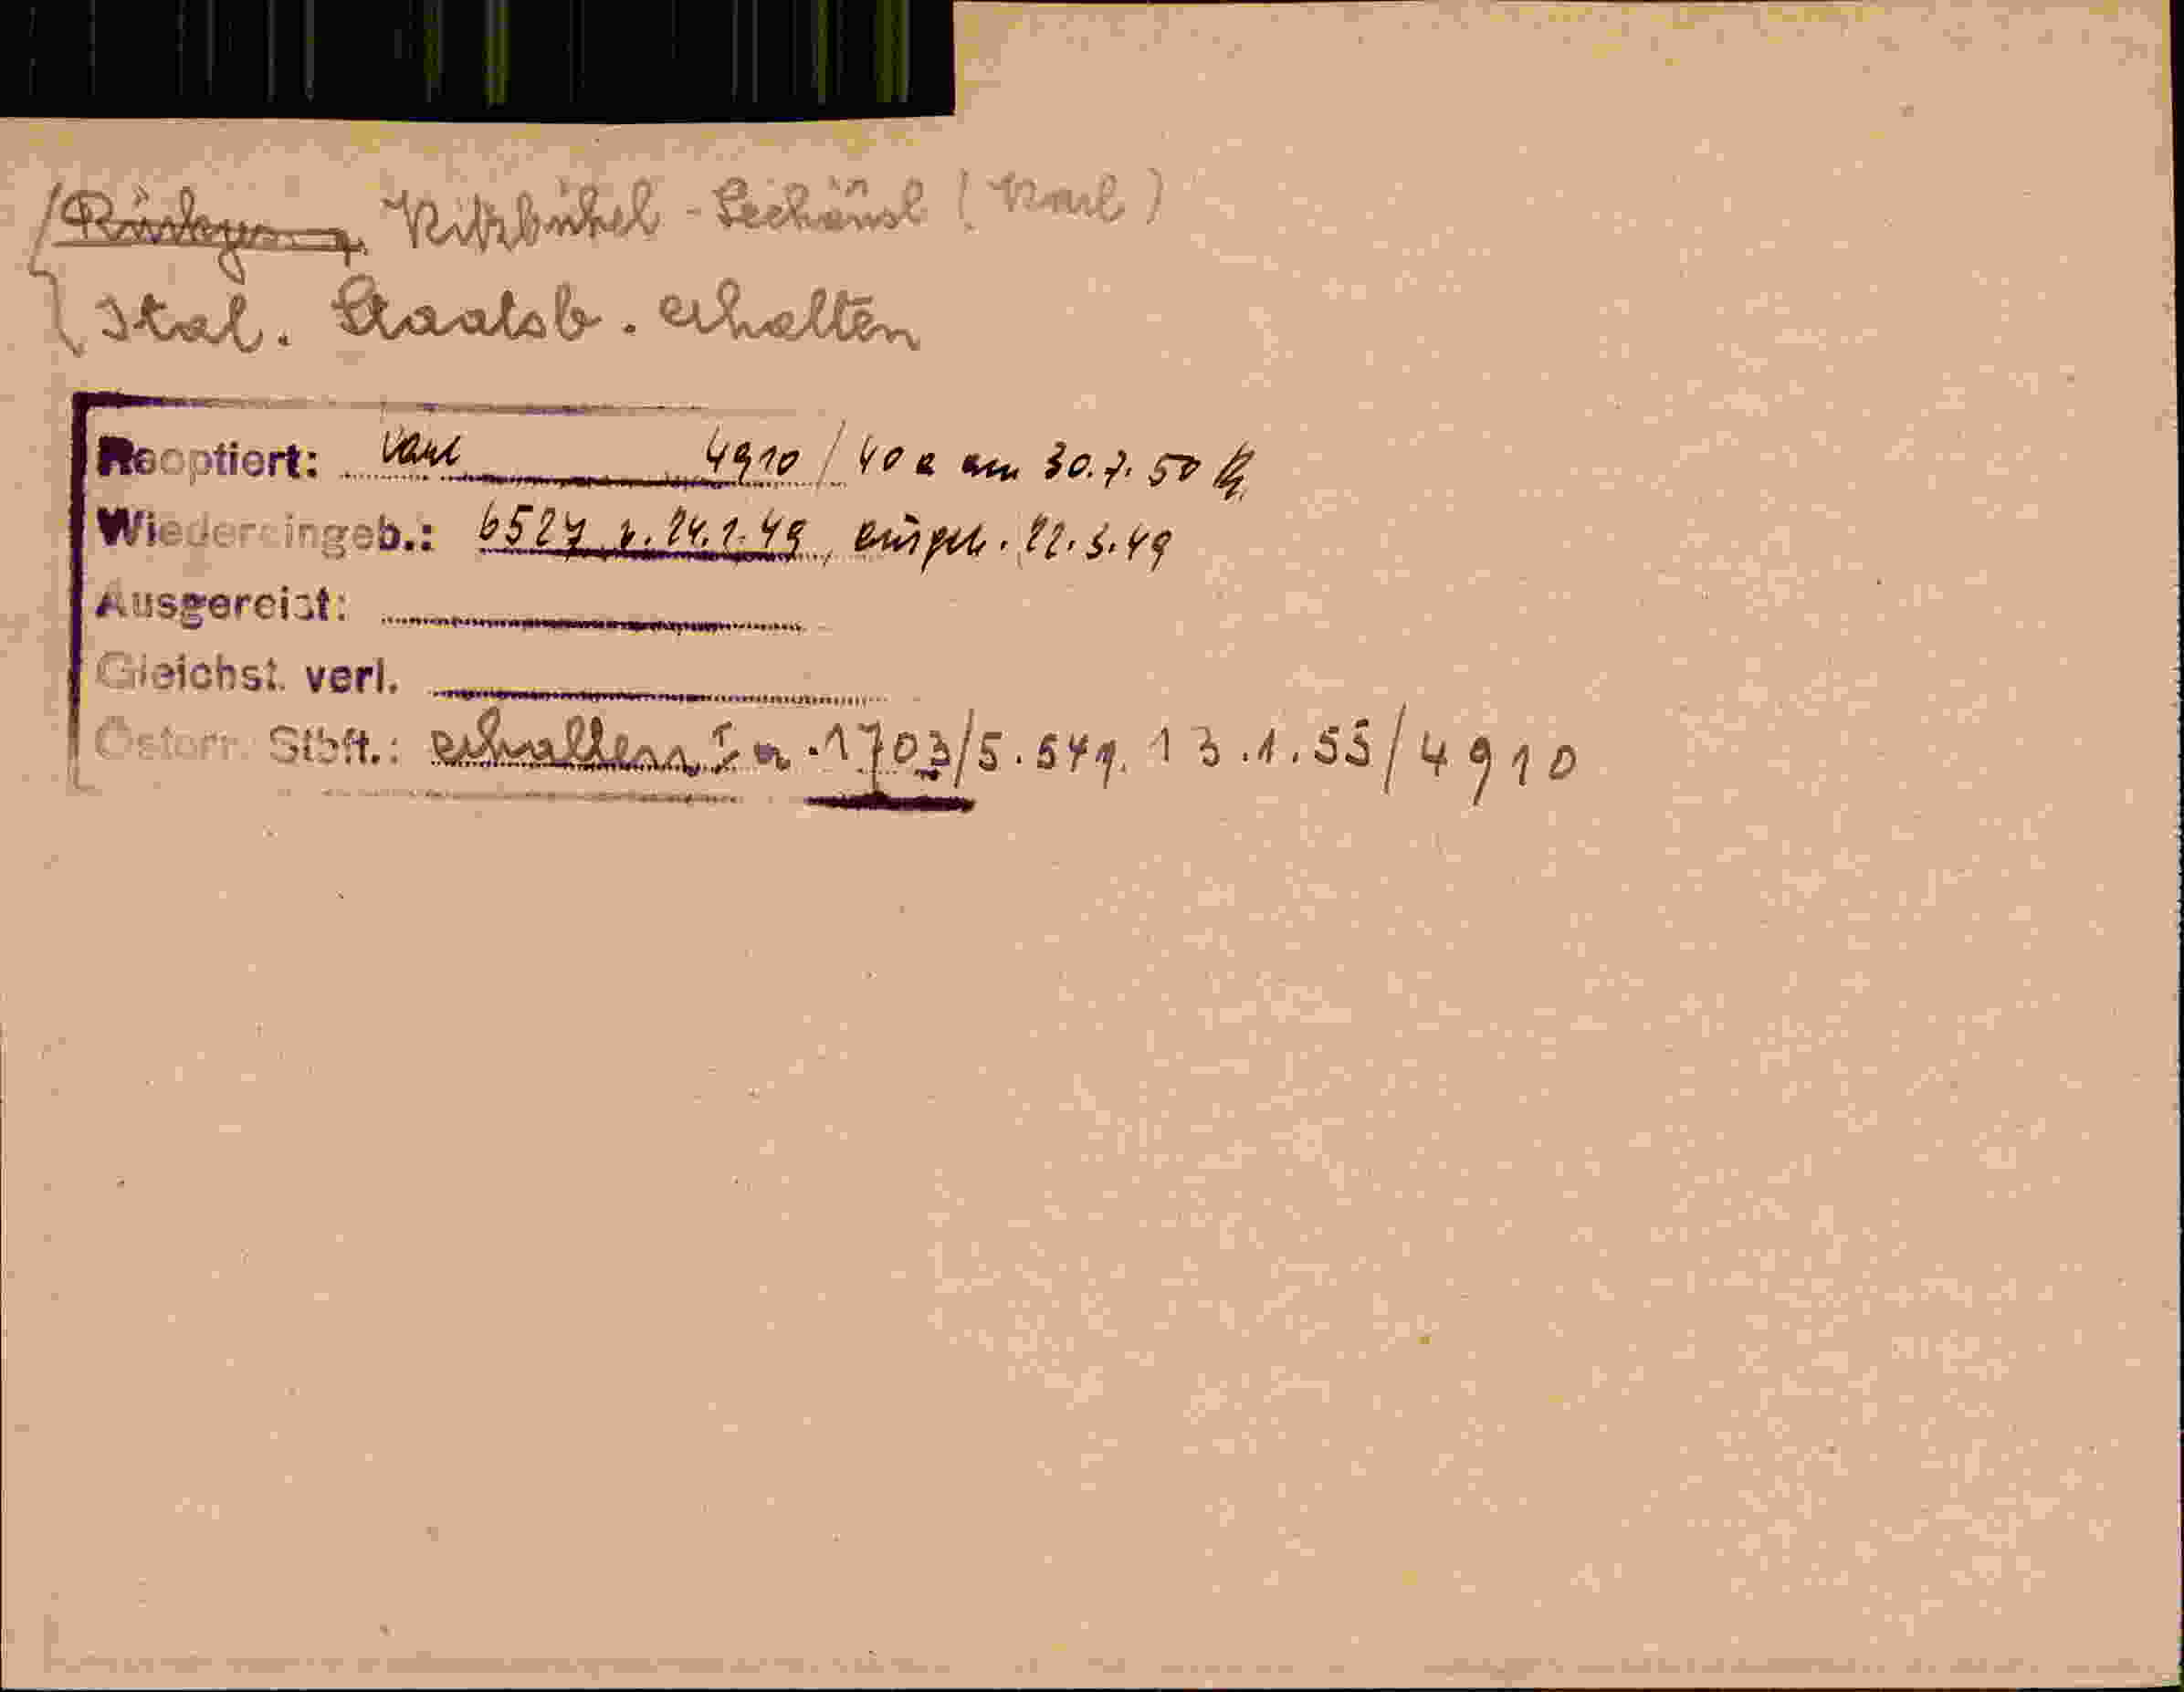 Kitzbühel - Seehäusl (Karl)
Ital. Staatsb. erhalten
Reoptiert: Karl 4910/40a am 30.7.50
Wiedereingeb.: 6527 v. 24.1.49, eingeb. 22.3.49
Ausgereist:
Gleichst. verl.
Österr. Stbft.: erhalten I a - 1703/5. 549. 13.1.55/4910